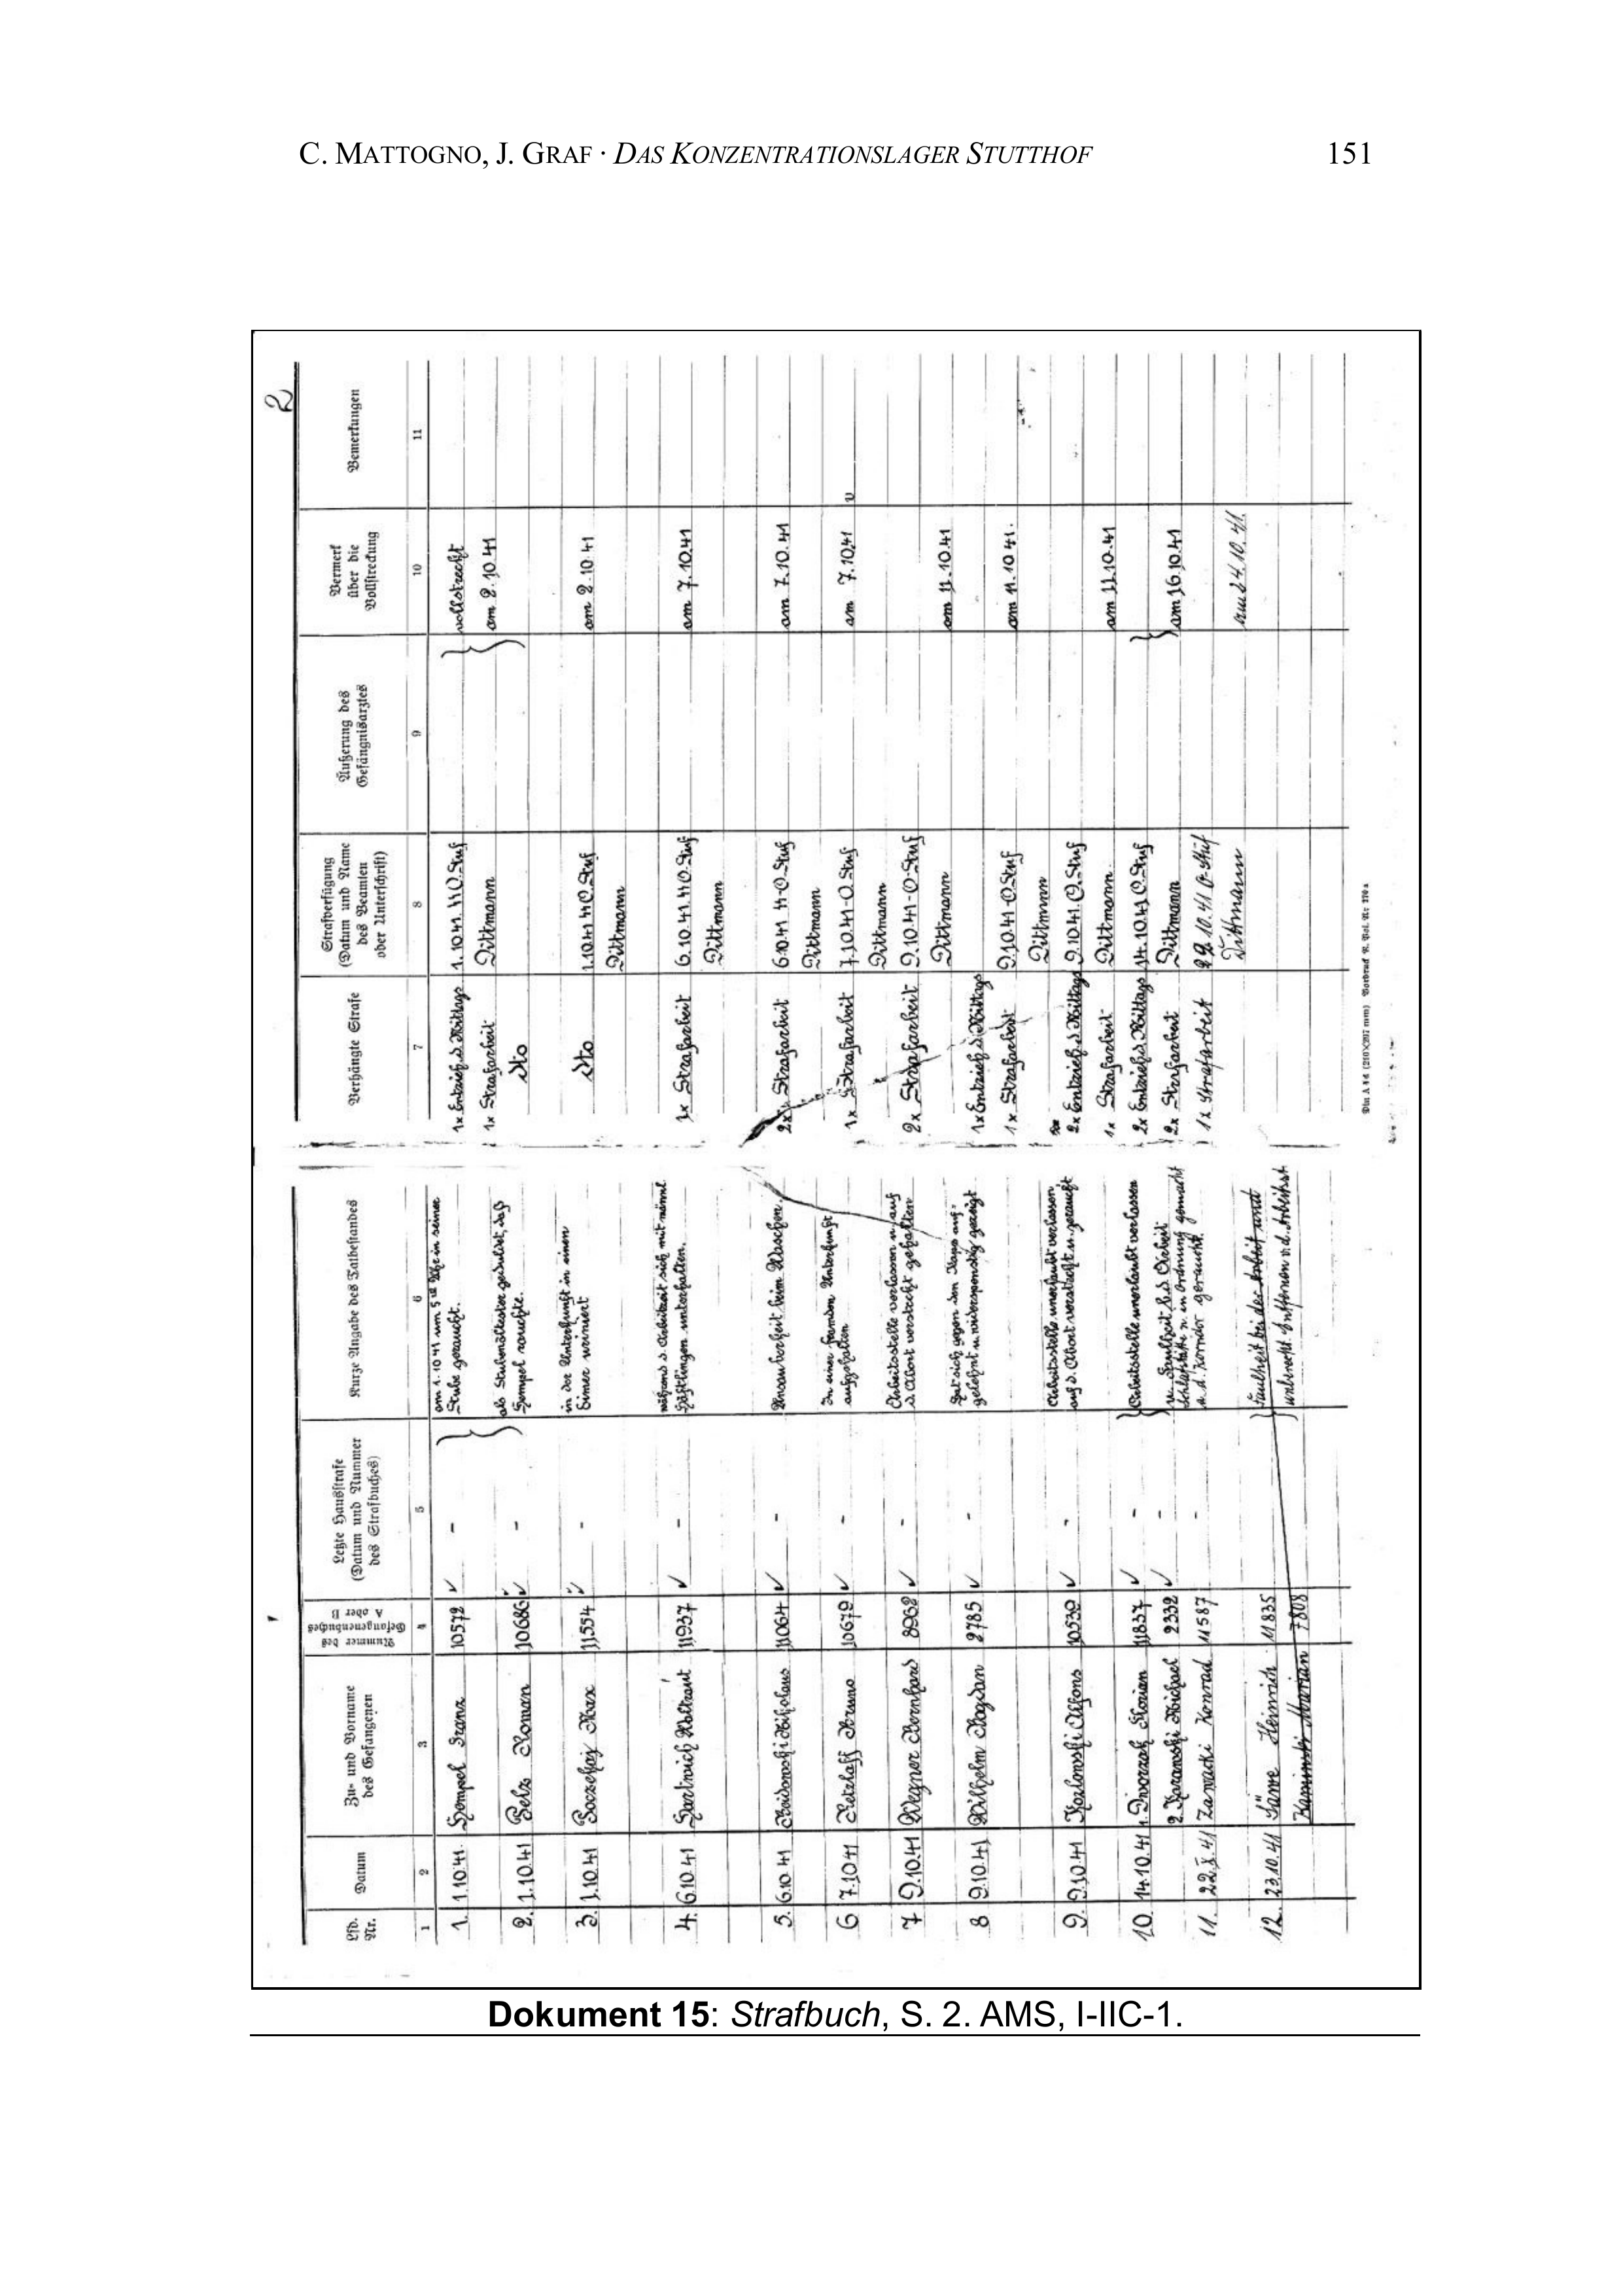 C. MATTOGNO, J. GRAF · DAS KONZENTRATIONSLAGER STUTTHOF 151
2
Lfd. Nr.
Datum
Zu- und Vorname
des Gefangenen
Nummer des
Gefangenenbuches
A oder B
Letzte Hausstrafe
(Datum und Nummer
des Strafbuches)
Kurze Angabe des Tatbestandes
Verhängte Strafe
Strafverfügung
(Datum und Name
des Beamten
oder Unterschrift)
Äußerung des
Gefängnisarztes
Vermerk
über die
Vollstreckung
Bemerkungen
1 2 3 4 5 6 7 8 9 10 11
1. 1.10.41. Hempel Franz 10572 - am 1.10.41 um 5 Uhr in seiner
Stube geraucht.
1x Entzieh. d. Mittags
1x Strafarbeit
1.10.41. O.Stuf
Dittmann
vollstreckt
am 2.10.41
2. 1.10.41 Pelz Roman 10686 - als Stubenältester geduldet, daß
Hempel rauchte.
dto
3. 1.10.41 Max 11554 - in der Unterkunft in einen
Eimer uriniert
dto
1.10.41 O.Stuf
Dittmann
am 2.10.41
4. 6.10.41 Hartwich Waltraut 11937 - während d. Arbeitszeit sich mit männl.
Häftlingen unterhalten.
1x Strafarbeit
6.10.41. O.Stuf
Dittmann
am 7.10.41
5. 6.10.41 Nikolaus 11064 - Unsauberkeit beim Waschen.
2x Strafarbeit
6.10.41 O.Stuf
Dittmann
am 7.10.41
6 7.10.41 Bruno 10679 - In einer fremden Unterkunft
aufgehalten
1x Strafarbeit
7.10.41 O.Stuf
Dittmann
am 7.10.41
7 9.10.41 Wegner Bernhard 8968 - Arbeitsstelle verlassen u. auf
d. Abort versteckt gehalten
2x Strafarbeit
9.10.41 O.Stuf
Dittmann
am 11.10.41
8 9.10.41 Wilhelm Bogdan 2785 - Hat sich gegen den Kapo auf-
gelehnt u. widerspenstig gezeigt
1x Entzieh. d. Mittags
1x Strafarbeit
9.10.41 O.Stuf
Dittmann
am 11.10.41.
9. 9.10.41 Kozlowski Alfons 10539 - Arbeitsstelle unerlaubt verlassen
auf d. Abort versteckt u. geraucht
2x Entzieh. d. Mittags
1x Strafarbeit
9.10.41 O.Stuf
Dittmann
am 11.10.41
10. 14.10.41 1. Dworzak Florian 11837 - Arbeitsstelle unerlaubt verlassen
2. Michael 2332 - u. Faulheit b. d. Arbeit
2x Entzieh. d. Mittags
2x Strafarbeit
14.10.41 O.Stuf
Dittmann
am 16.10.41
11. 22.X.41 Zawacki Konrad 11587 - Schlafstätte n. in Ordnung gemacht
a. d. Korridor geraucht.
1x Strafarbeit
22.10.41 O-Stuf
Dittmann
am 24.10.41.
12. 23.10.41 Heinrich 11835 Faulheit bei der Arbeit und
Kaminski Marian 7808 unberecht. Entfernen v. d. Arbeitsst.
Din A 4
Dokument 15: Strafbuch, S. 2. AMS, I-IIC-1.